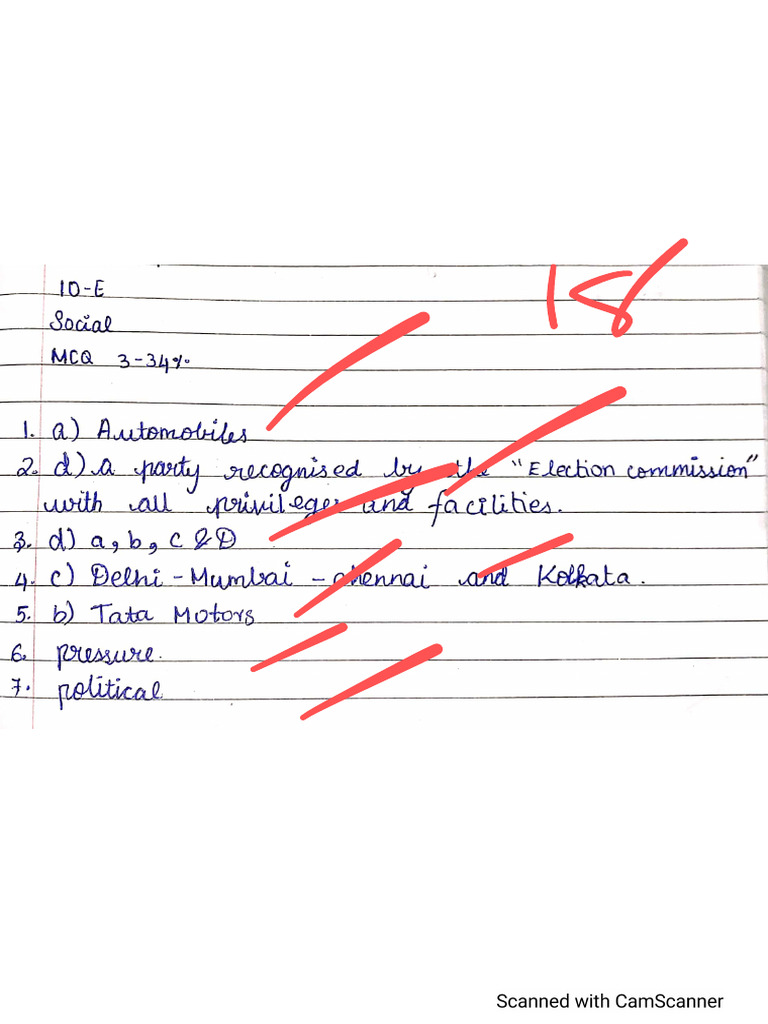 10-E
18
Social
MCQ 3-34%.
1. a) Automobiles
2. d) a party recognised by the "Election commission"
with all privileges and facilities.
3. d) a, b, c & D
4. c) Delhi - Mumbai - chennai and Kolkata.
5. b) Tata Motors
6. pressure.
7. political
Scanned with CamScanner